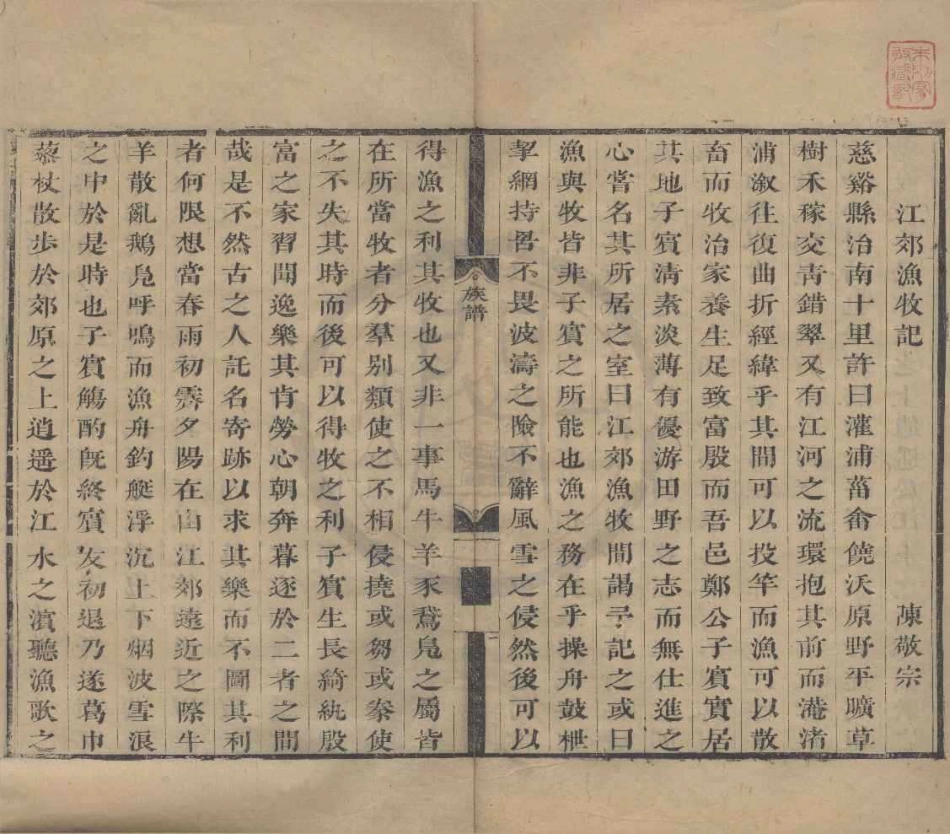 江郊漁牧記 陳敬宗
慈谿縣治南十里許曰灌浦菑畬饒沃原野平曠草
樹禾稼交青錯翠又有江河之流環抱其前而港渚
浦溆往復曲折經緯乎其間可以投竿而漁可以散
畜而牧治家養生足致富殷而吾邑鄭公子賓實居
其地子賓清素淡薄有優游田野之志而無仕進之
心嘗名其所居之室曰江郊漁牧間謁予記之或曰
漁與牧皆非子賓之所能也漁之務在乎操舟鼓枻
挈網持罟不畏波濤之險不辭風雪之侵然後可以
族譜
得漁之利其牧也又非一事馬牛羊豕鵞鳬之屬皆
在所當牧者分羣别類使之不相侵撓或芻或豢使
之不失其時而後可以得牧之利子賓生長綺紈殷
富之家習閒逸樂其肯勞心朝奔暮逐於二者之間
哉是不然古之人託名寄跡以求其樂而不圖其利
者何限想當春雨初霽夕陽在山江郊遠近之際牛
羊散亂鵝鳬呼鳴而漁舟釣艇浮沉上下烟波雪浪
之中於是時也子賓觴酌旣終賓友初退乃遂葛巾
藜杖散步於郊原之上逍遥於江水之濱聽漁歌之